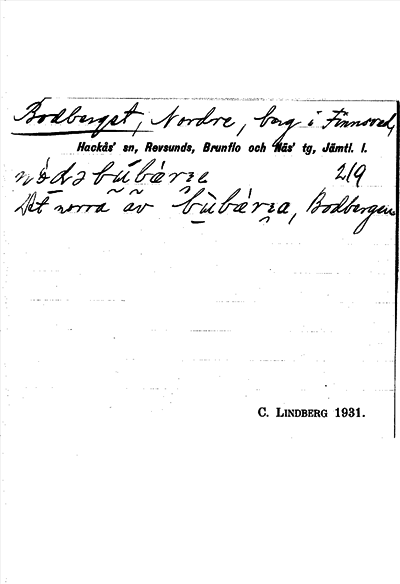 Bodberget, Nordre, berg i Finnsved,
Hackås' sn, Revsunds, Brunflo och Näs' tg, Jämtl. l.
219
Det norra av bùbárza, Bodbergen
C. LINDBERG 1931.